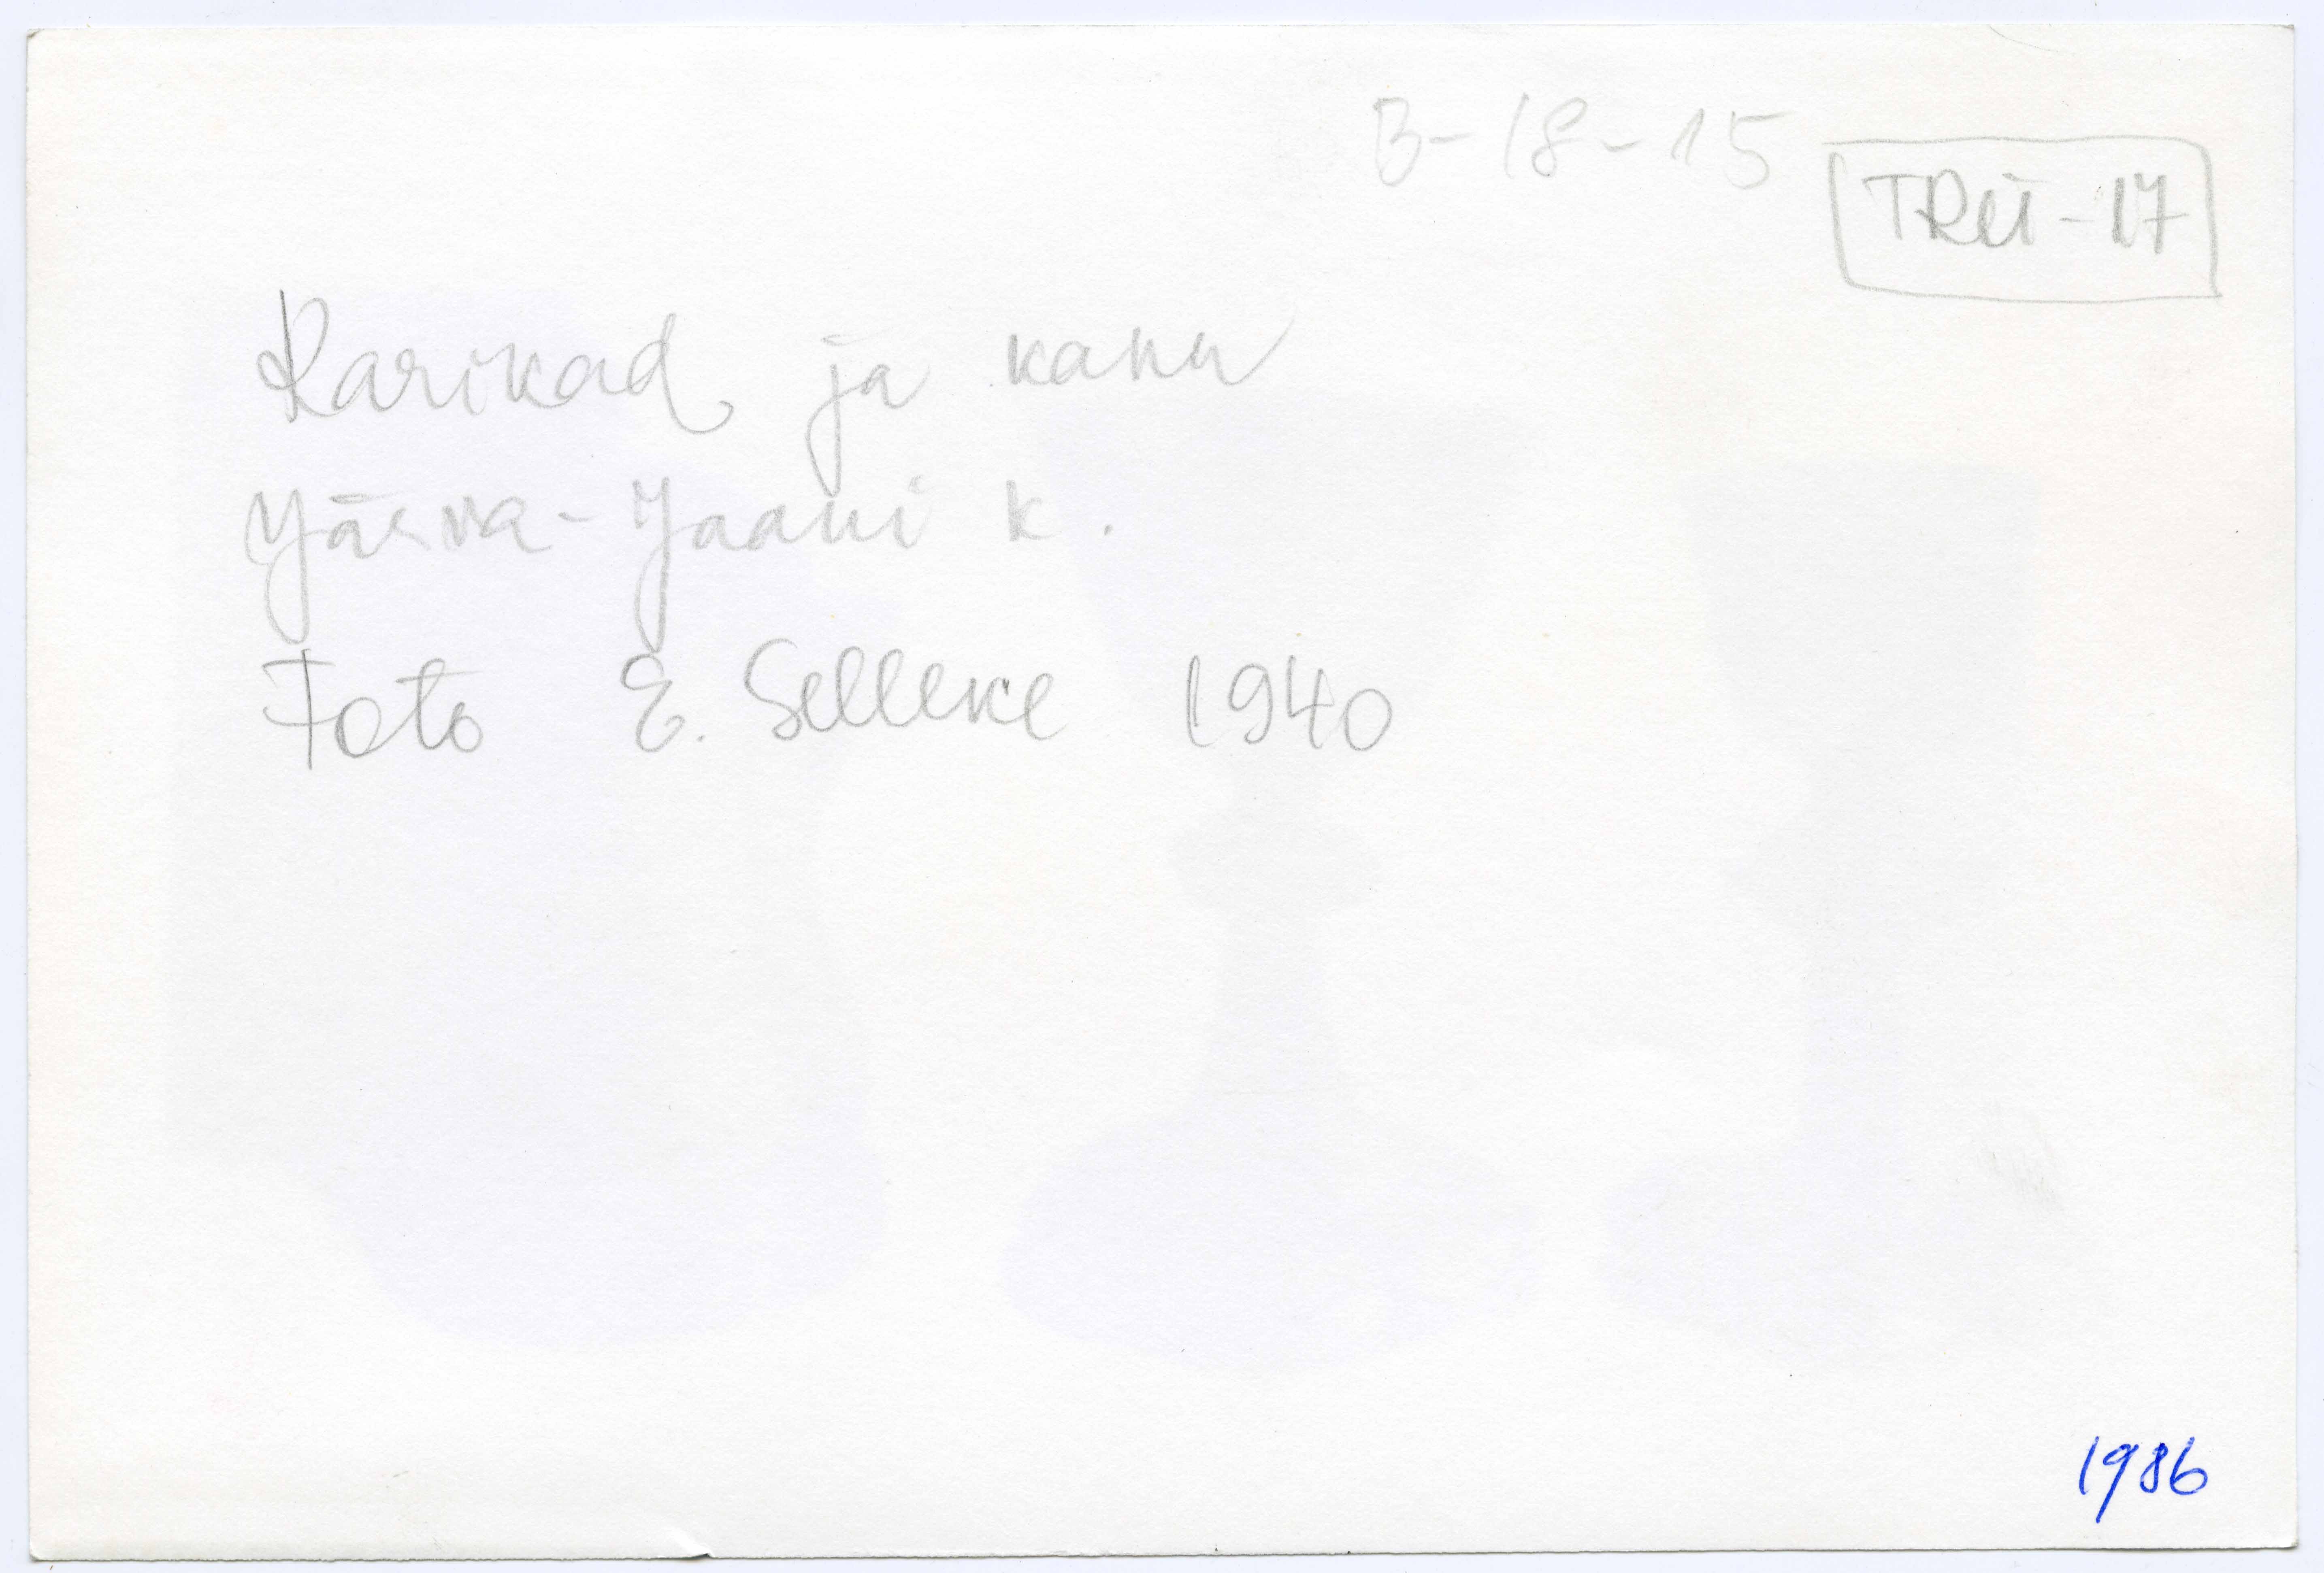 B-18-15
TRÜ-17
Karikad ja kann
Järva-Jaani k.
Foto E. Selleke 1940
1986